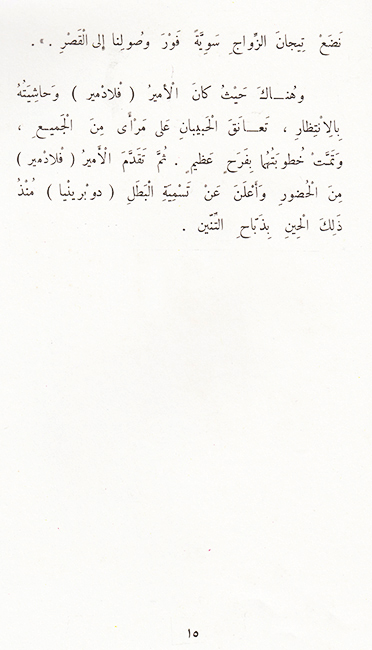 نَضَعْ تِيجانَ الزَّواجِ سَوِيَّةً فَوْرَ وُصُولِنا إلى الْقَصْرِ . » .
وهُنــاكَ حَيْثُ كانَ الْأميرُ ( فْلادْمير ) وَحاشِيَتُهُ
بِالِانْتِظارِ ، تَعــانَقَ الْحَبيبانِ عَلى مَرْأى مِنَ الْجَميـعِ ،
وَتَمَّتْ خُطوبَتُهُما بِفَرَحٍ عَظيمٍ . ثُمَّ تَقَدَّمَ الْأَميرُ ( فْلادْمير )
مِنَ الْحُضورِ وَأَعْلَنَ عَنْ تَسْمِيَةِ الْبَطَلِ ( دوبْرينْيا ) مُنْذُ
ذَلِكَ الْحينِ بِذَبّاحِ التِّنّينِ .
١٥